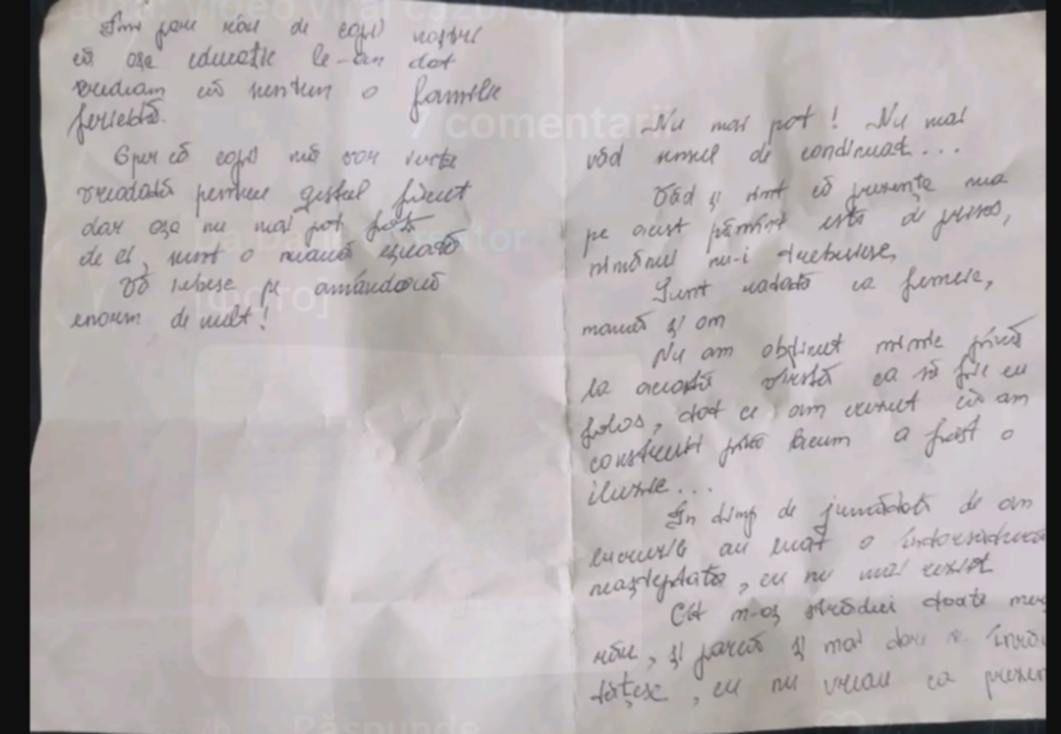 Îmi pare rău de copii noștri
că așa educație le-am dat
credeam că suntem o familie
fericită.
7 comentarii
Sper că copii mă vor ierta
vreodată pentru gestul făcut
dar așa nu mai pot
de el, sunt o mamă eșuată
Vă iubesc pe amândouă
enorm de mult!
Nu mai pot! Nu mai
văd sensul de continuat...
Văd și simt că prezența mea
pe acest pămînt este de prisos,
nimănui nu-i trebuiesc,
Sunt ca femeie,
mamă și om
Nu am obținut nimic pînă
la această vîrstă ca să fie cu
folos, tot ce am crezut că am
construit pînă acum a fost o
iluzie...
În timp de jumătate de an
lucrurile au luat o întorsătură
neașteptată, eu nu mai rezist
Cît m-aș strădui toate merg
rău, și parcă și mai tare se înrău
tățesc, eu nu vreau ca
Răspunde